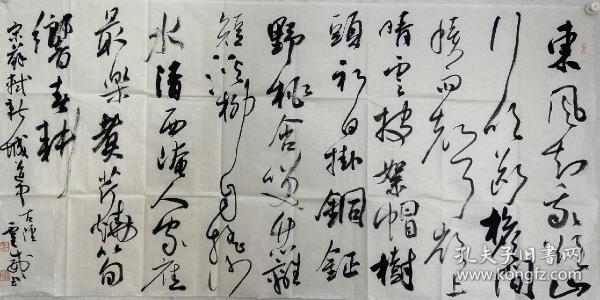 東風知我欲山
行吹斷檐間
積雨聲嶺上
晴雲披絮帽樹
頭初日掛銅鉦
野桃含笑竹籬
短溪柳自搖沙
水清西崦人家應
最樂煮芹燒筍
春耕
宋蘇軾新城道中
孔夫子旧书网